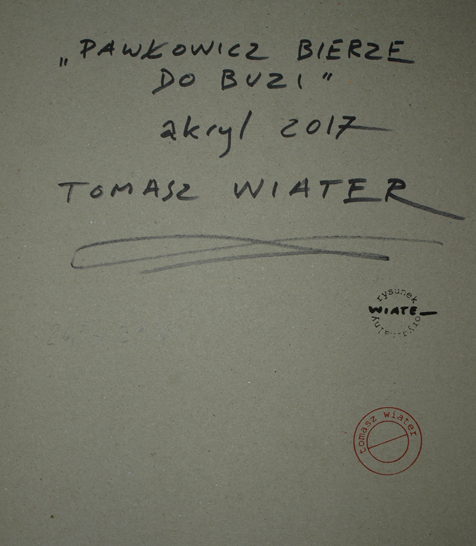 „PAWKOWICZ BIERZE
DO BUZI"
akryl 2017
TOMASZ WIATER
rysunek
WIATE
oryginalny
tomasz wiater